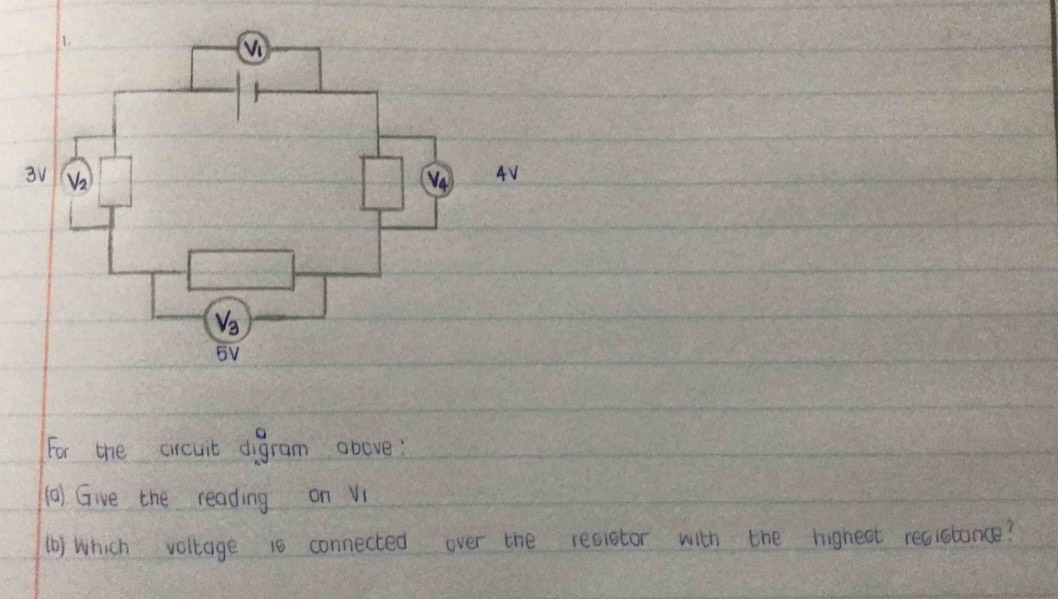 1.
V1
3V V2 V4 4V
V3
5V
For the circuit diagram above:
(a) Give the reading on V1
(b) Which voltage is connected over the resistor with the highest resistance?